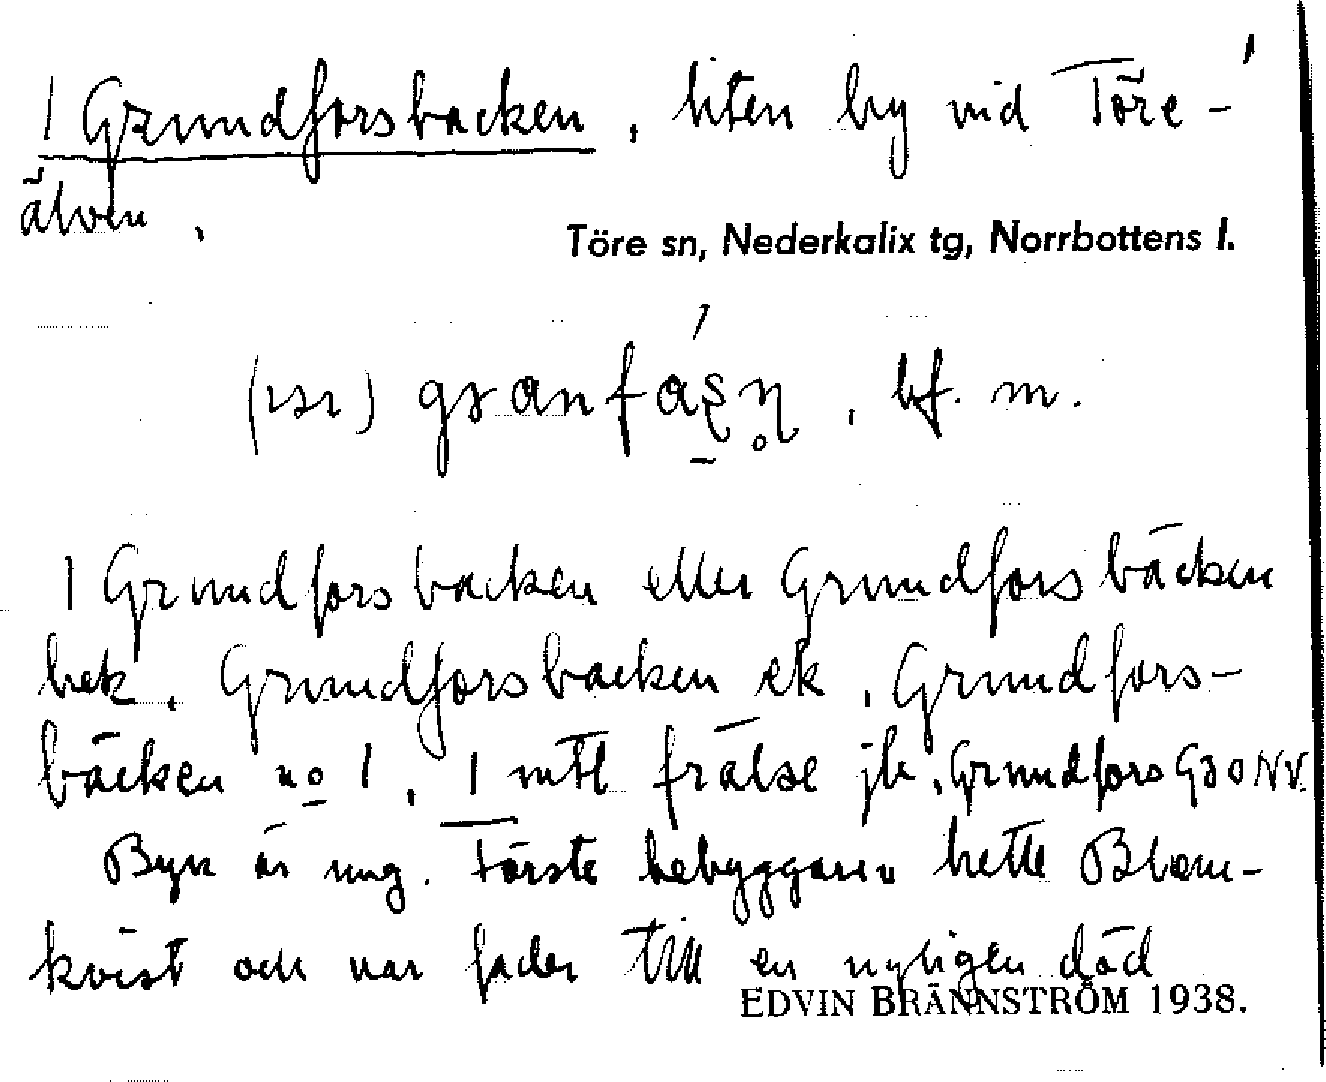 1 Grundforsbacken, liten by vid Töre-
älven.
Töre sn, Nederkalix tg, Norrbottens l.
bf. m.
1 Grundforsbacken eller Grundforsbäcken
hek. Grundforsbacken ek, Grundfors-
bäcken no 1, 1 mtl frälse jb, Grundfors G30NV.
Byn är ung. Förste bebyggaren hette Blom-
kvist och var fader till en nyligen död
EDVIN BRÄNNSTRÖM 1938.